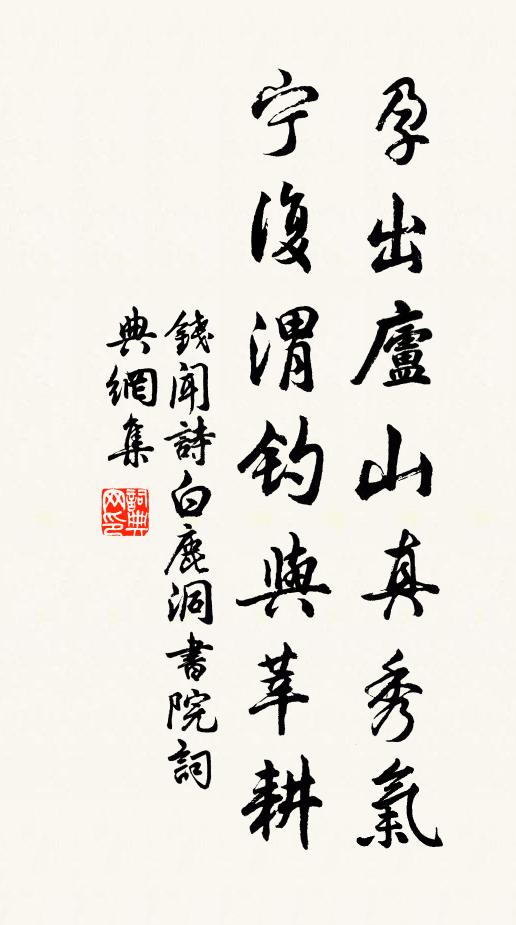 孕出廬山真秀氣
宁復渭钓與莘耕
錢聞詩白鹿洞書院詞
典網集
詞典
网印